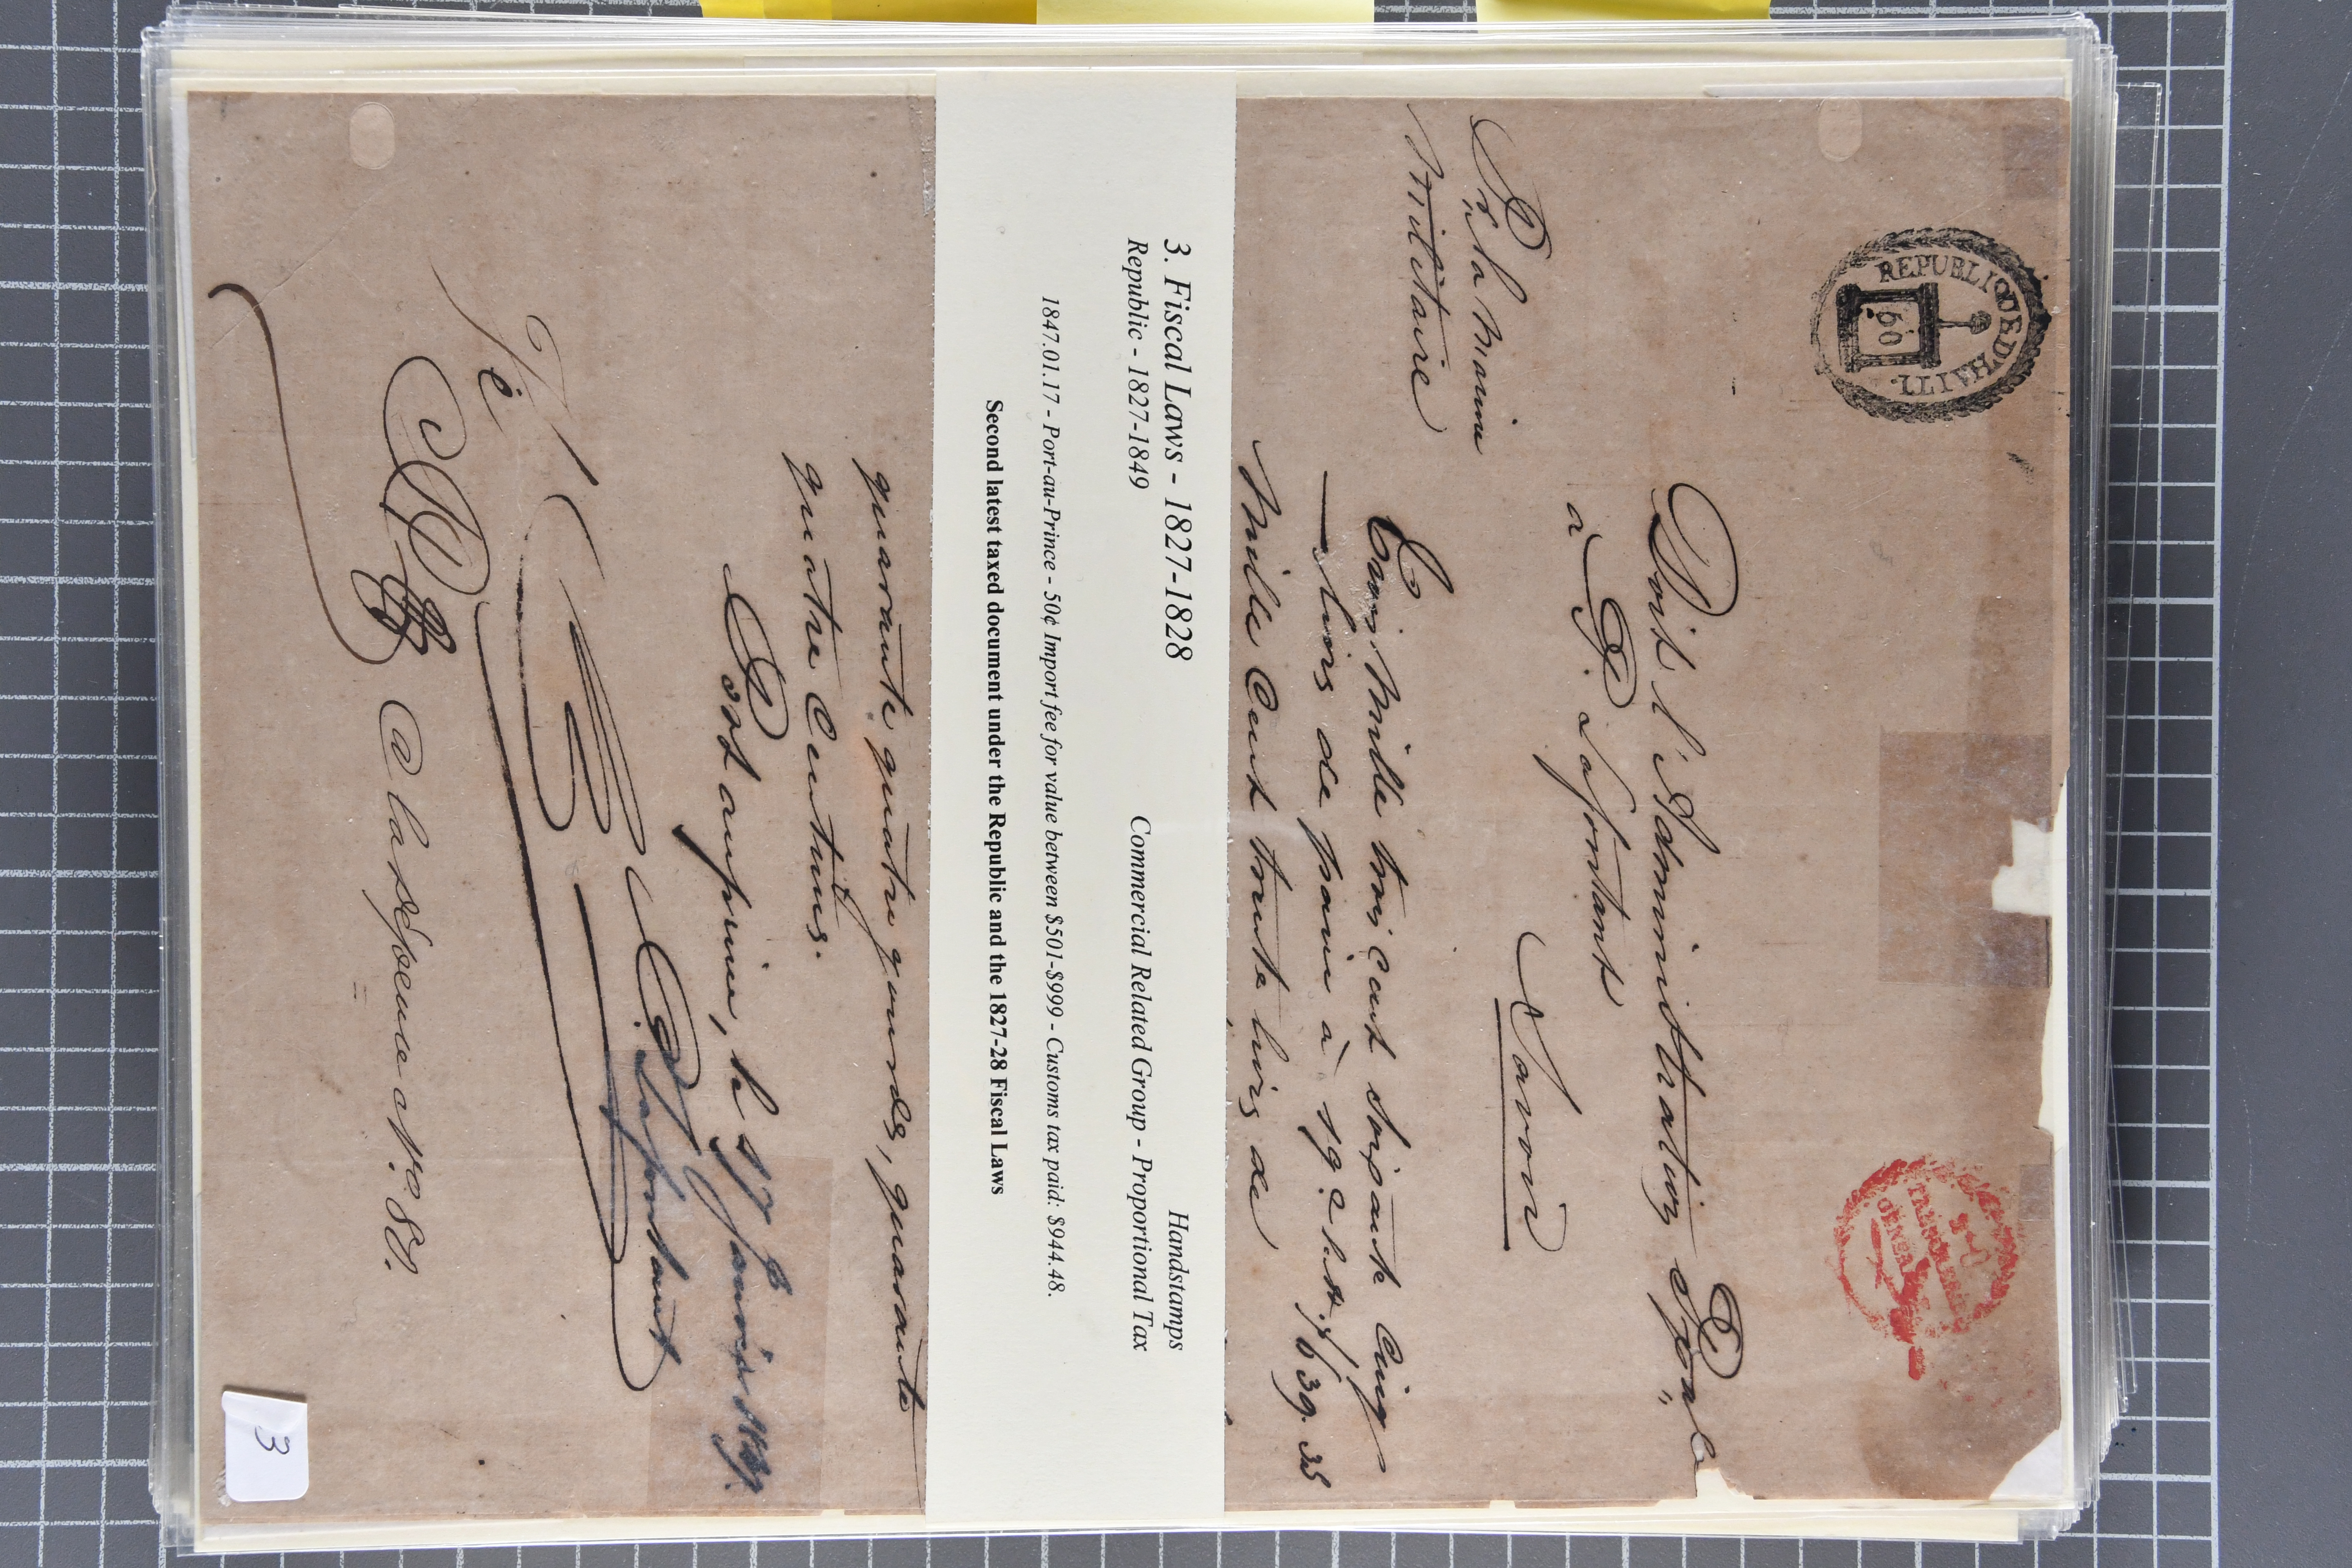 REPUBLIQUE D'HAITI.
50
TRESORERIE
GENERALE
Doit l'Administration Ppale
à P. Lafontant
Savoir
Pr. la marine
militaire
Trois mille trois cent soixante cinq
livres de pain à
639.35
mille cent trente livres de
3. Fiscal Laws - 1827-1828
Handstamps
Republic - 1827-1849
Commercial Related Group - Proportional Tax
1847.01.17 - Port-au-Prince - 50¢ Import fee for value between $501-$999 - Customs tax paid: $944.48.
Second latest taxed document under the Republic and the 1827-28 Fiscal Laws
quarante quatre gourdes, quarante
quatre Centimes.
Port au prince, le 17 Janvier 1847.
P. Lafontant
à la dépence No. 87.
3